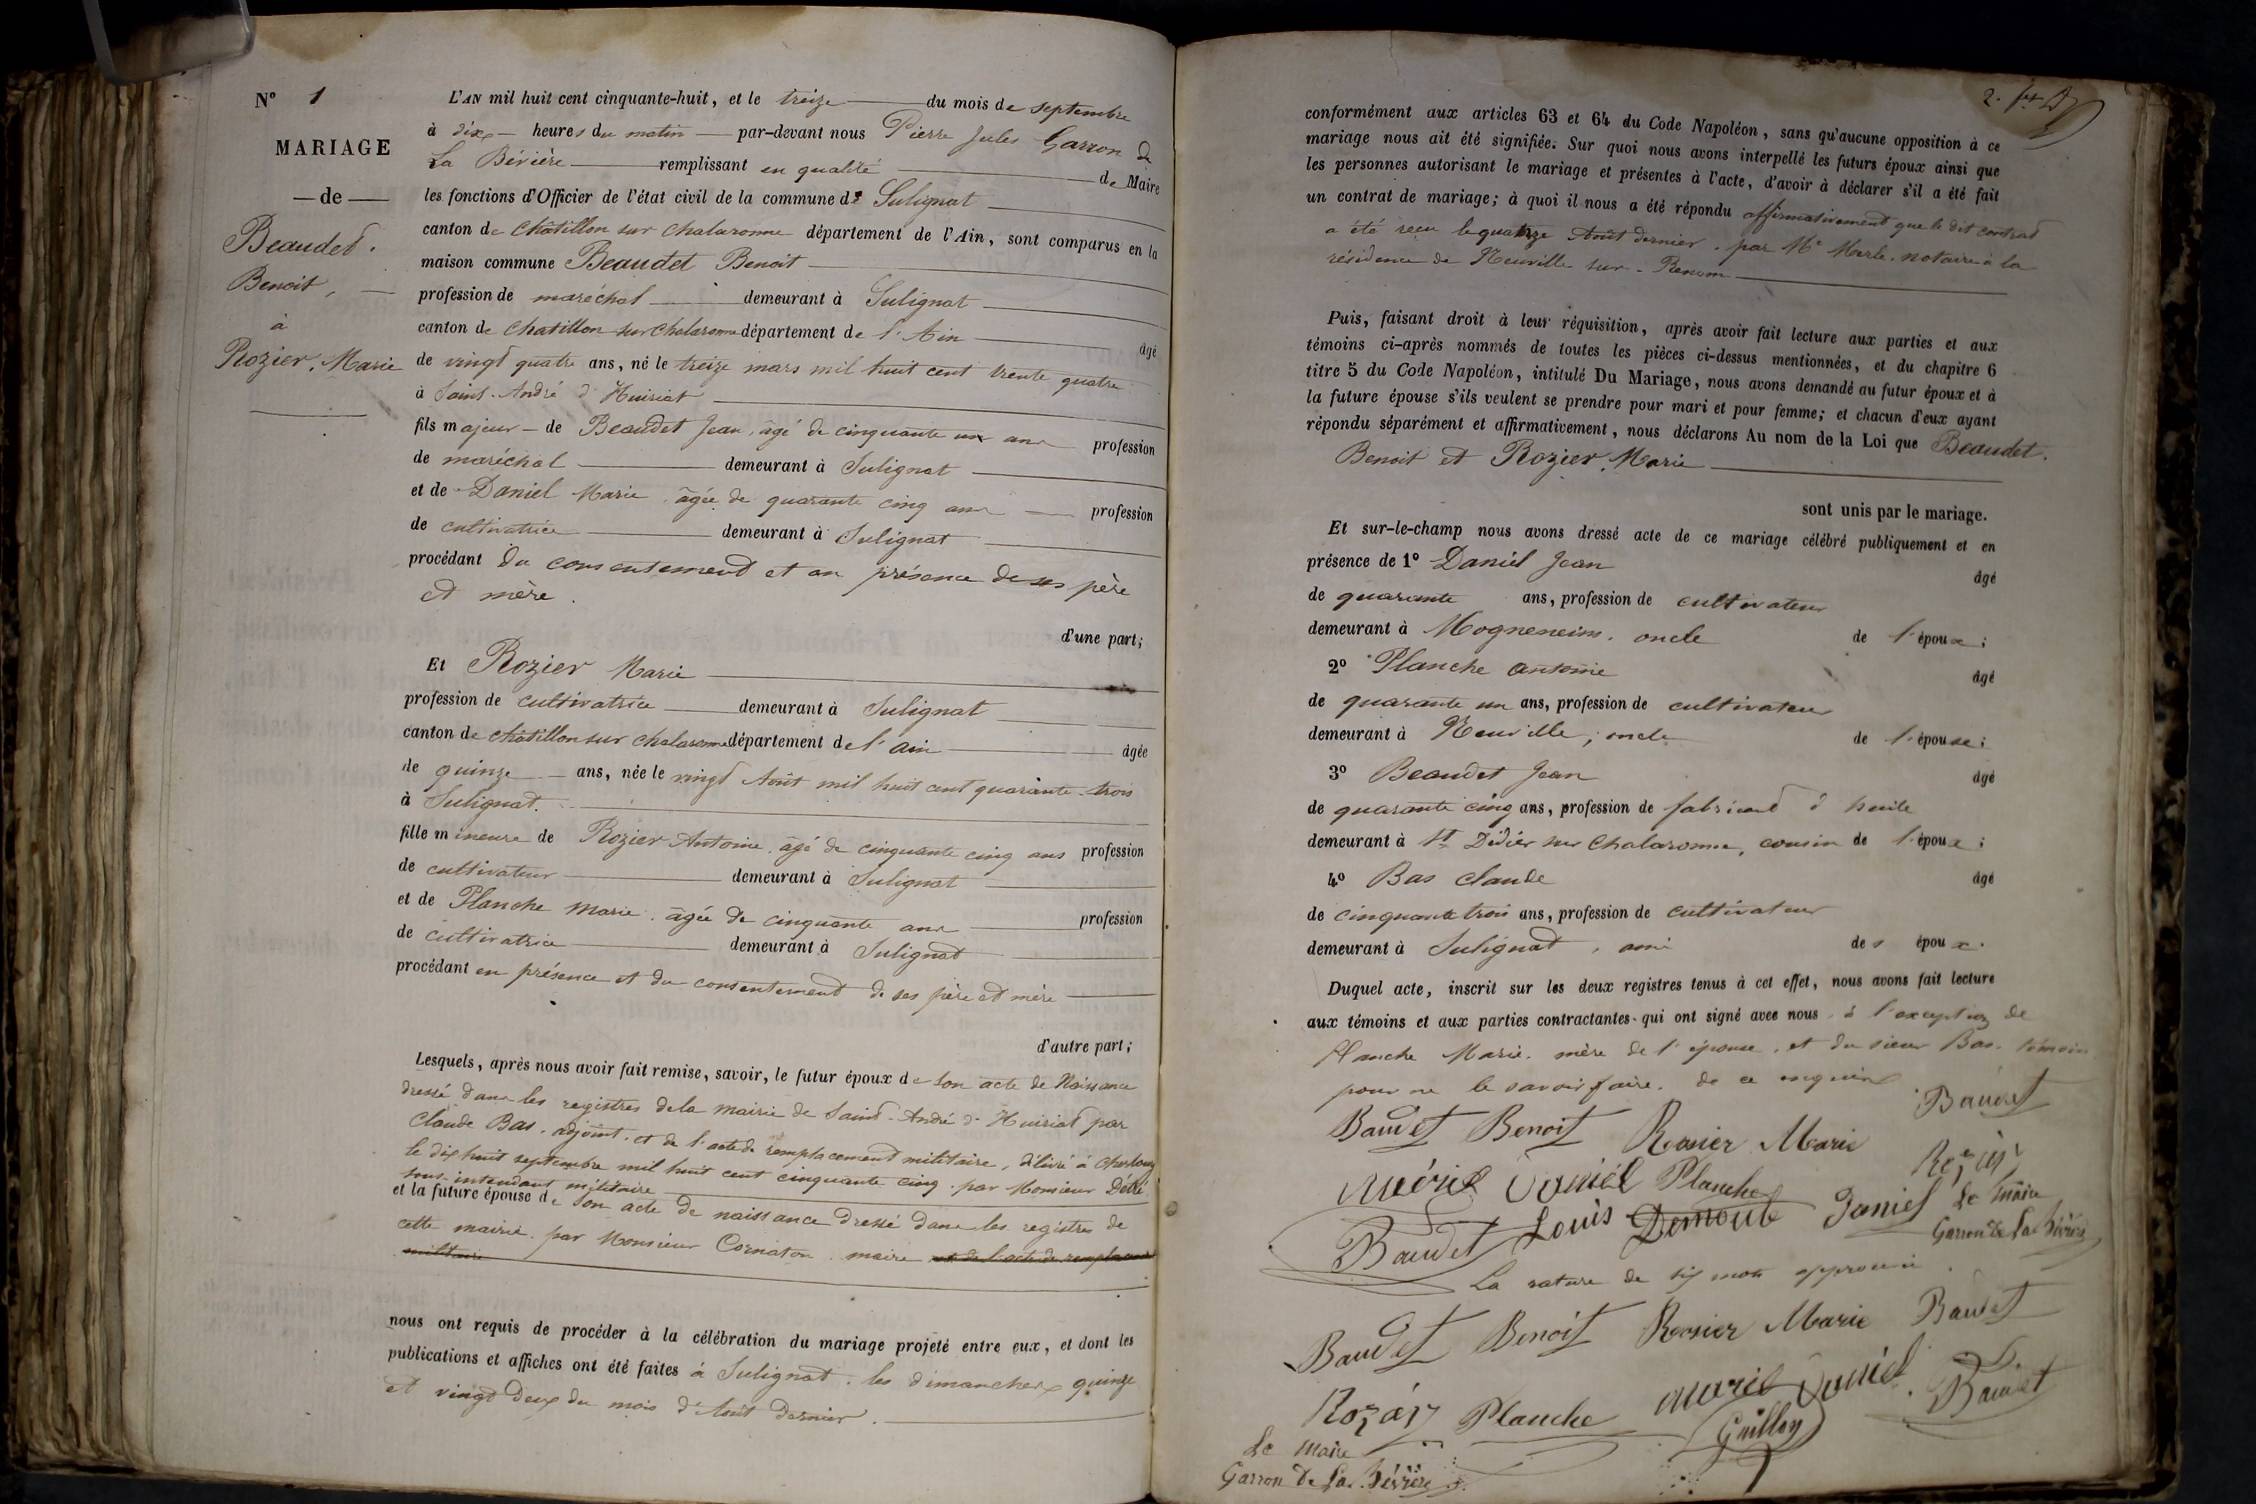 N° 1
MARIAGE
— de —
Beaudet.
Benoit,
à
Rozier, Marie
L'AN mil huit cent cinquante-huit, et le treize du mois de septembre
à dix heures du matin par-devant nous Pierre Jules Garron de
La Bévière remplissant en qualité de Maire
les fonctions d'Officier de l'état civil de la commune de Sulignat
canton de Châtillon sur Chalaronne département de l'Ain, sont comparus en la
maison commune Beaudet Benoit
profession de maréchal demeurant à Sulignat
canton de Chatillon sur Chalaronne département de l'Ain âgé
de vingt quatre ans, né le treize mars mil huit cent trente quatre
à Saint-André d'Huiriat
fils majeur de Beaudet Jean, âgé de cinquante un ans profession
de maréchal demeurant à Sulignat
et de Daniel Marie, âgée de quarante cinq ans profession
de cultivatrice demeurant à Sulignat
procédant du consentement et en présence de ses père
et mère.
d'une part;
Et Rozier Marie
profession de cultivatrice demeurant à Sulignat
canton de châtillon sur chalaronne département de l'ain âgée
de quinze ans, née le vingt Août mil huit cent quarante-trois
à Sulignat.
fille mineure de Rozier Antoine, âgé de cinquante cinq ans profession
de cultivateur demeurant à Sulignat
et de Planche Marie, âgée de cinquante ans profession
de cultivatrice demeurant à Sulignat
procédant en présence et du consentement de ses père et mère
d'autre part;
Lesquels, après nous avoir fait remise, savoir, le futur époux de son acte de Naissance
dressé dans les registres de la mairie de Saint-André d'Huiriat par
Claude Bas, adjoint, et de l'acte de remplacement militaire, délivré à Cherbourg
le dix huit septembre mil huit cent cinquante cinq, par Monsieur Détré
sous-intendant militaire
et la future épouse de son acte de naissance dressé dans les registres de
cette mairie, par Monsieur Cornaton, maire et de l'acte de remplacement
militaire
nous ont requis de procéder à la célébration du mariage projeté entre eux, et dont les
publications et affiches ont été faites à Sulignat, les dimanches quinze
et vingt deux du mois d'Août dernier.
conformément aux articles 63 et 64 du Code Napoléon, sans qu'aucune opposition à ce
mariage nous ait été signifiée. Sur quoi nous avons interpellé les futurs époux ainsi que
les personnes autorisant le mariage et présentes à l'acte, d'avoir à déclarer s'il a été fait
un contrat de mariage; à quoi il nous a été répondu affirmativement que le dit contrat
a été reçu le quatorze Août dernier, par Me Merle, notaire à la
résidence de Neuville-sur-Renom
Puis, faisant droit à leur réquisition, après avoir fait lecture aux parties et aux
témoins ci-après nommés de toutes les pièces ci-dessus mentionnées, et du chapitre 6
titre 5 du Code Napoléon, intitulé Du Mariage, nous avons demandé au futur époux et à
la future épouse s'ils veulent se prendre pour mari et pour femme; et chacun d'eux ayant
répondu séparément et affirmativement, nous déclarons Au nom de la Loi que Beaudet.
Benoit et Rozier, Marie
sont unis par le mariage.
Et sur-le-champ nous avons dressé acte de ce mariage célébré publiquement et en
présence de 1° Daniel Jean âgé
de quarante ans, profession de cultivateur
demeurant à Mogneneins, oncle de l'époux;
2° Planche Antoine âgé
de quarante un ans, profession de cultivateur
demeurant à Neuville, oncle de l'épouse;
3° Beaudet Jean âgé
de quarante cinq ans, profession de fabricant d'huile
demeurant à St Didier sur Chalaronne, cousin de l'époux;
4° Bas Claude âgé
de cinquante trois ans, profession de cultivateur
demeurant à Sulignat, ami des époux.
Duquel acte, inscrit sur les deux registres tenus à cet effet, nous avons fait lecture
aux témoins et aux parties contractantes qui ont signé avec nous, à l'exception de
Planche Marie, mère de l'épouse, et du sieur Bas, témoin
pour ne le savoir faire, de ce enquis
Baudet
Baudet Benoit Rosier Marie
Marie Daniel Planche Rozier
Baudet Louis Demoule Daniel Le Maire
Garron de La Bévière
La rature de six mots approuvée.
Baudet Benoit Rosier Marie Baudet
Rozier Planche Marie Daniel Baudet
Guillon
Le Maire
Garron De La Bévière